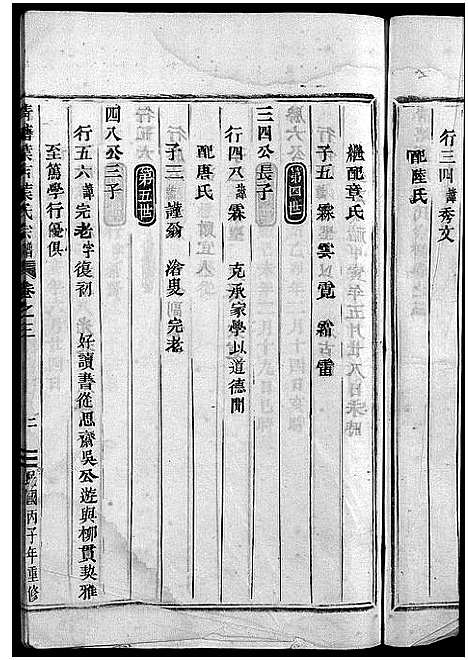 行三四諱秀文
配陸氏
繼配章氏
子五 霖 雲 以霓 霜 古雷
第四世
三四公長子
行四八諱霖 克承家學以道德聞
配唐氏
子三 謹翁 完老
第五世
四八公三子
行五六諱完老字復初 好讀書從思齋吳公遊與柳貫契雅
至篤學行優俱
葉氏宗譜 卷之三 三 民國丙子年重修